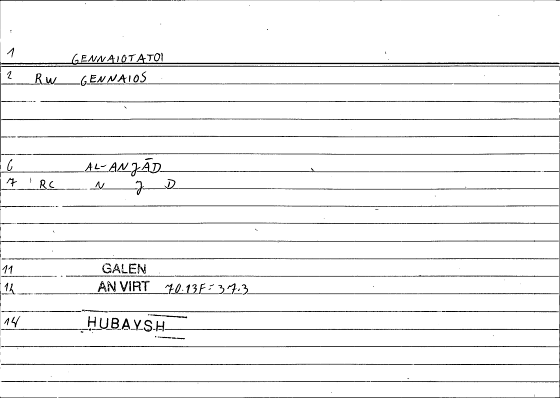 1 GENNAIOTATOI
2 RW GENNAIOS
6 AL-ANǧĀD
7 RC N ǧ D
11 GALEN
12 AN VIRT 70.13F = 37.3
14 HUBAYSH